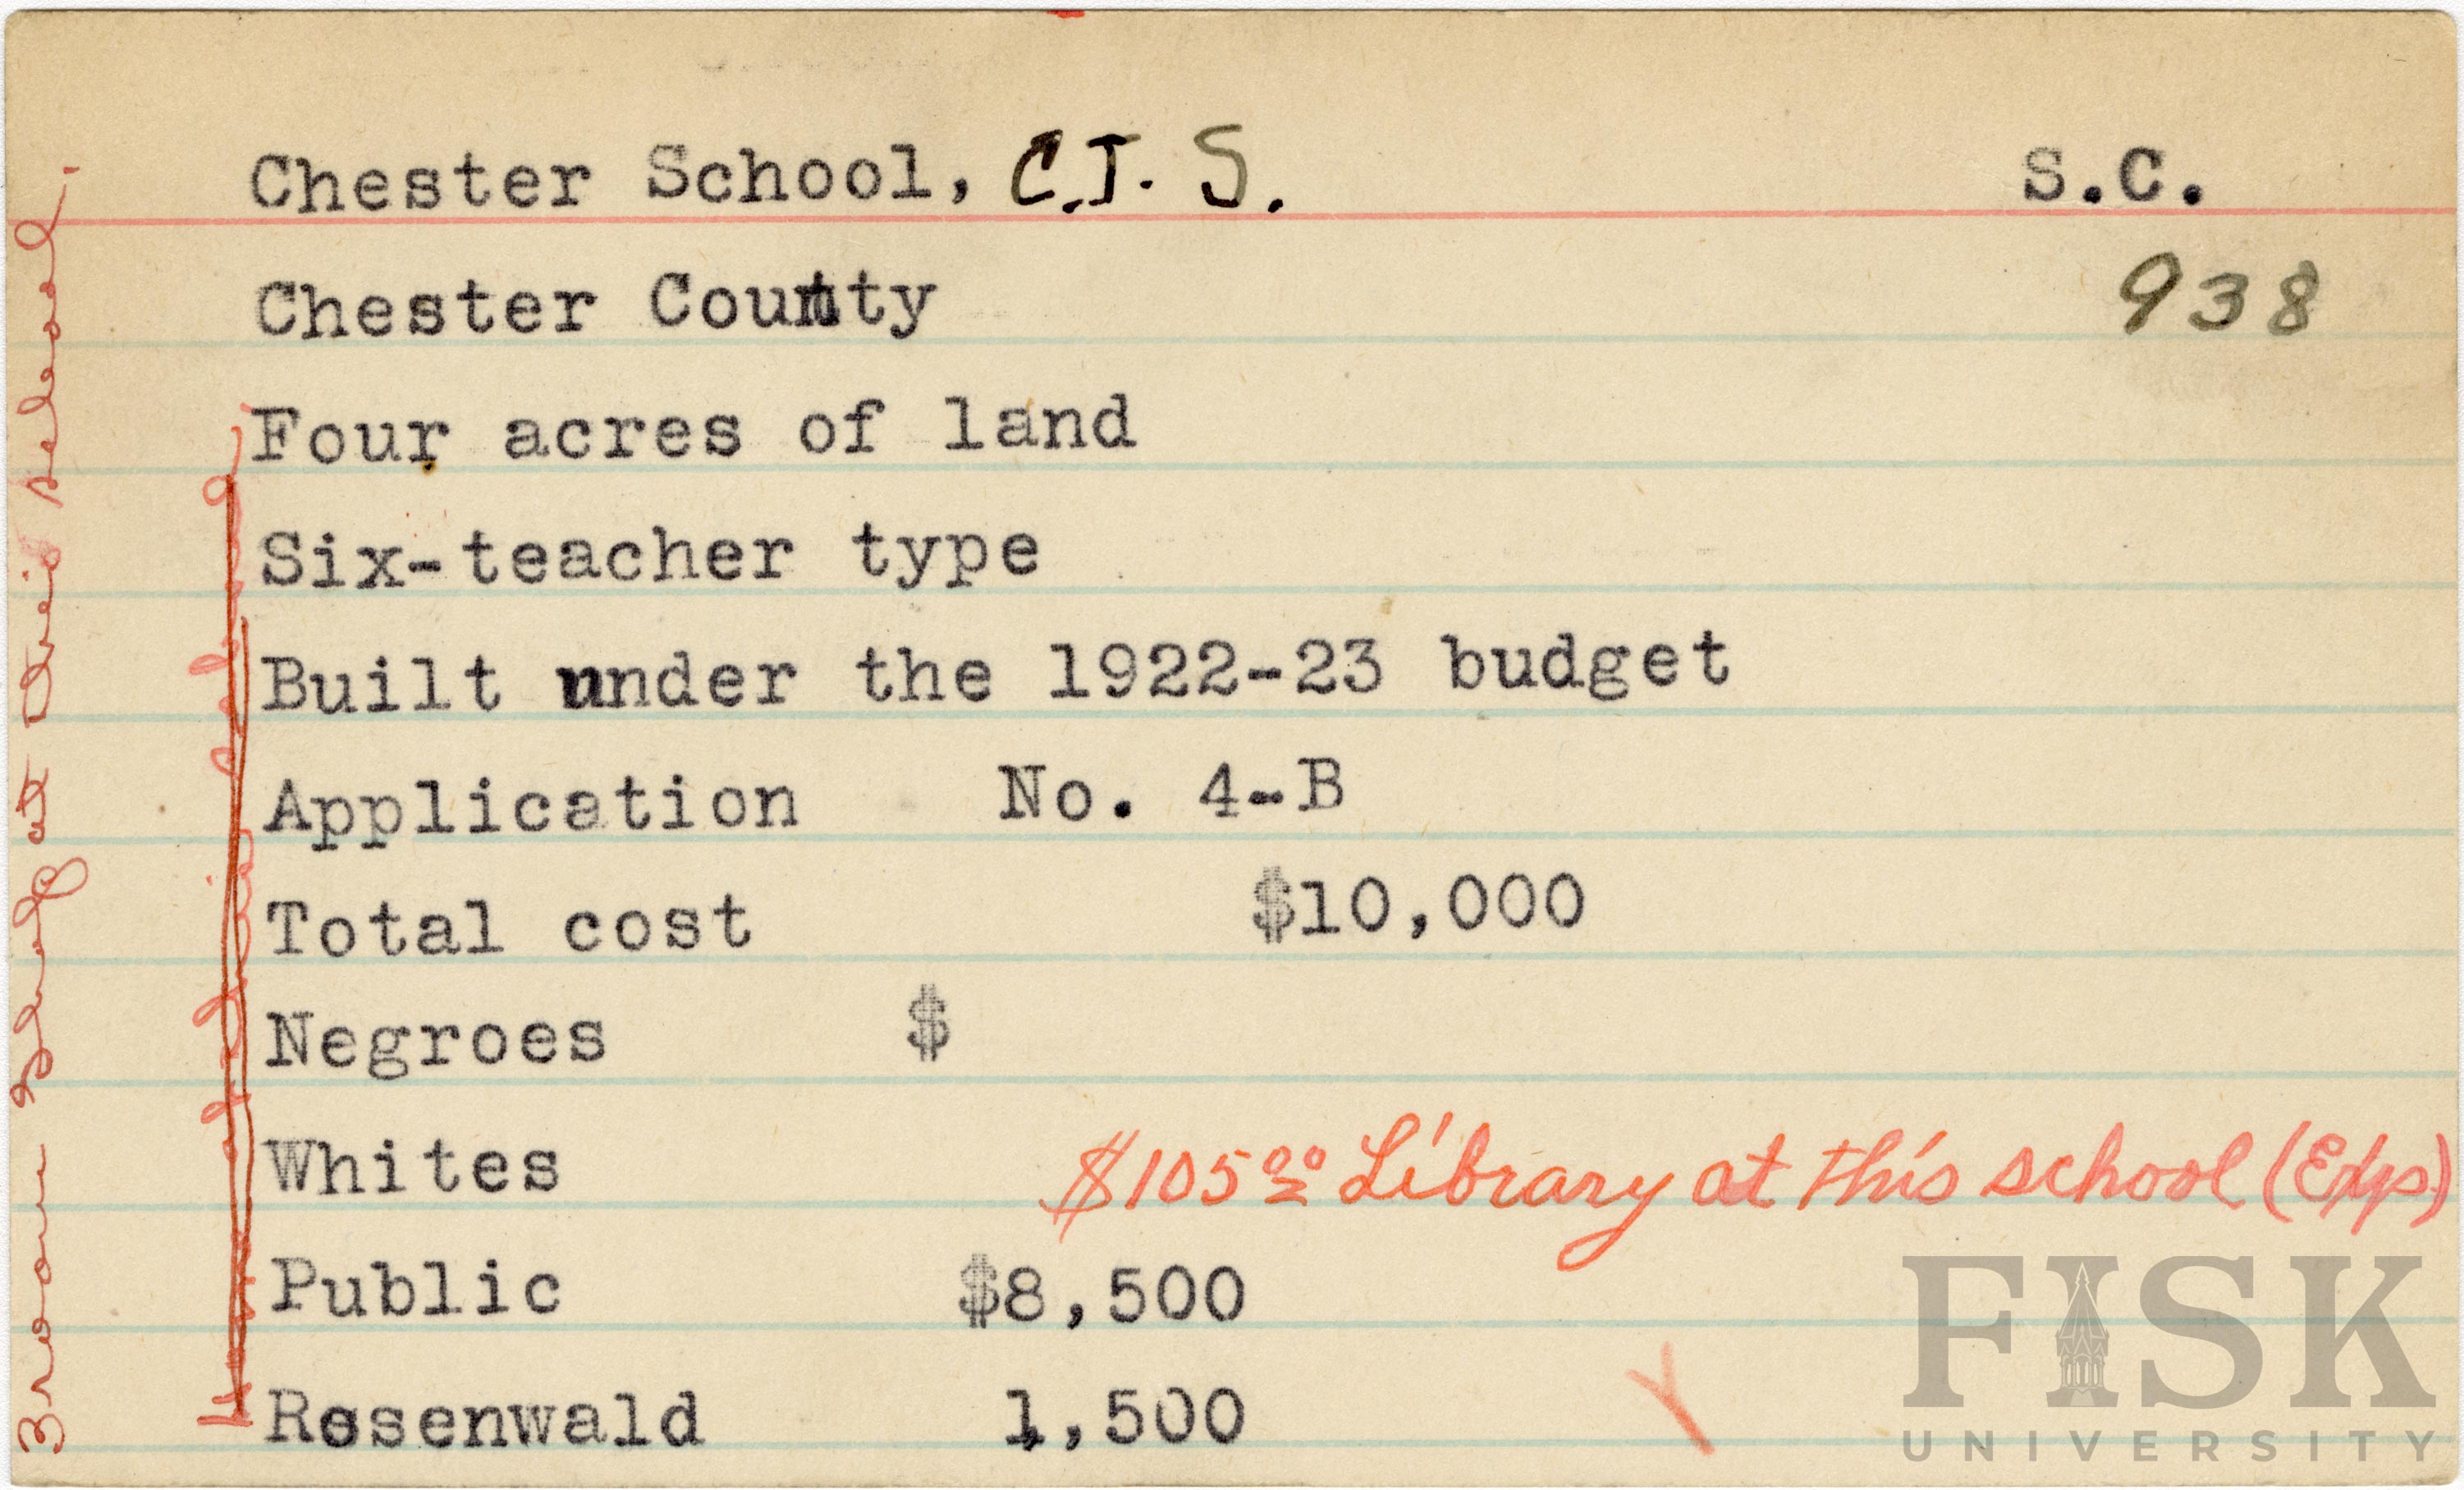 Chester School, C.T.S. S.C.
Chester County 938
Four acres of land
Six-teacher type
Built under the 1922-23 budget
Application No. 4-B
Total cost $10,000
Negroes $
Whites $105.00 Library at this school (Exps)
Public $8,500
Rosenwald 1,500
at this school.
FISK
UNIVERSITY